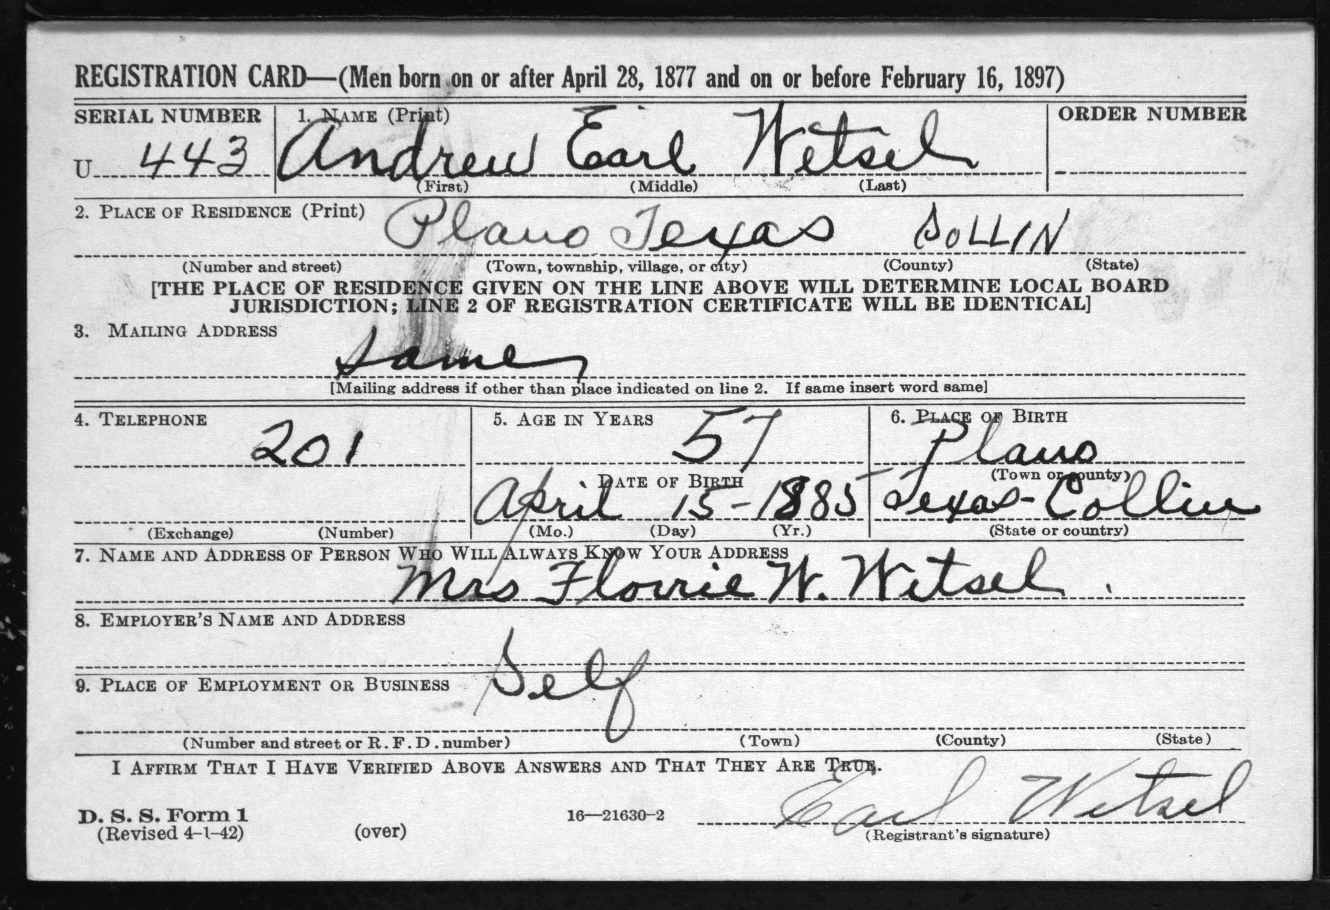 REGISTRATION CARD—(Men born on or after April 28, 1877 and on or before February 16, 1897)
SERIAL NUMBER 1. NAME (Print) ORDER NUMBER
U 443 Andrew Earl Wetsel
(First) (Middle) (Last)
2. PLACE OF RESIDENCE (Print)
Plano Texas COLLIN
(Number and street) (Town, township, village, or city) (County) (State)
[THE PLACE OF RESIDENCE GIVEN ON THE LINE ABOVE WILL DETERMINE LOCAL BOARD
JURISDICTION; LINE 2 OF REGISTRATION CERTIFICATE WILL BE IDENTICAL]
3. MAILING ADDRESS
Same
[Mailing address if other than place indicated on line 2. If same insert word same]
4. TELEPHONE 5. AGE IN YEARS 6. PLACE OF BIRTH
201 57 Plano
DATE OF BIRTH (Town or county)
April 15-1885 Texas-Collin
(Exchange) (Number) (Mo.) (Day) (Yr.) (State or country)
7. NAME AND ADDRESS OF PERSON WHO WILL ALWAYS KNOW YOUR ADDRESS
Mrs Florrie W. Wetsel.
8. EMPLOYER'S NAME AND ADDRESS
Self
9. PLACE OF EMPLOYMENT OR BUSINESS
(Number and street or R. F. D. number) (Town) (County) (State)
I AFFIRM THAT I HAVE VERIFIED ABOVE ANSWERS AND THAT THEY ARE TRUE.
Earl Wetsel
D. S. S. Form 1 16—21630-2
(Revised 4-1-42) (over) (Registrant's signature)